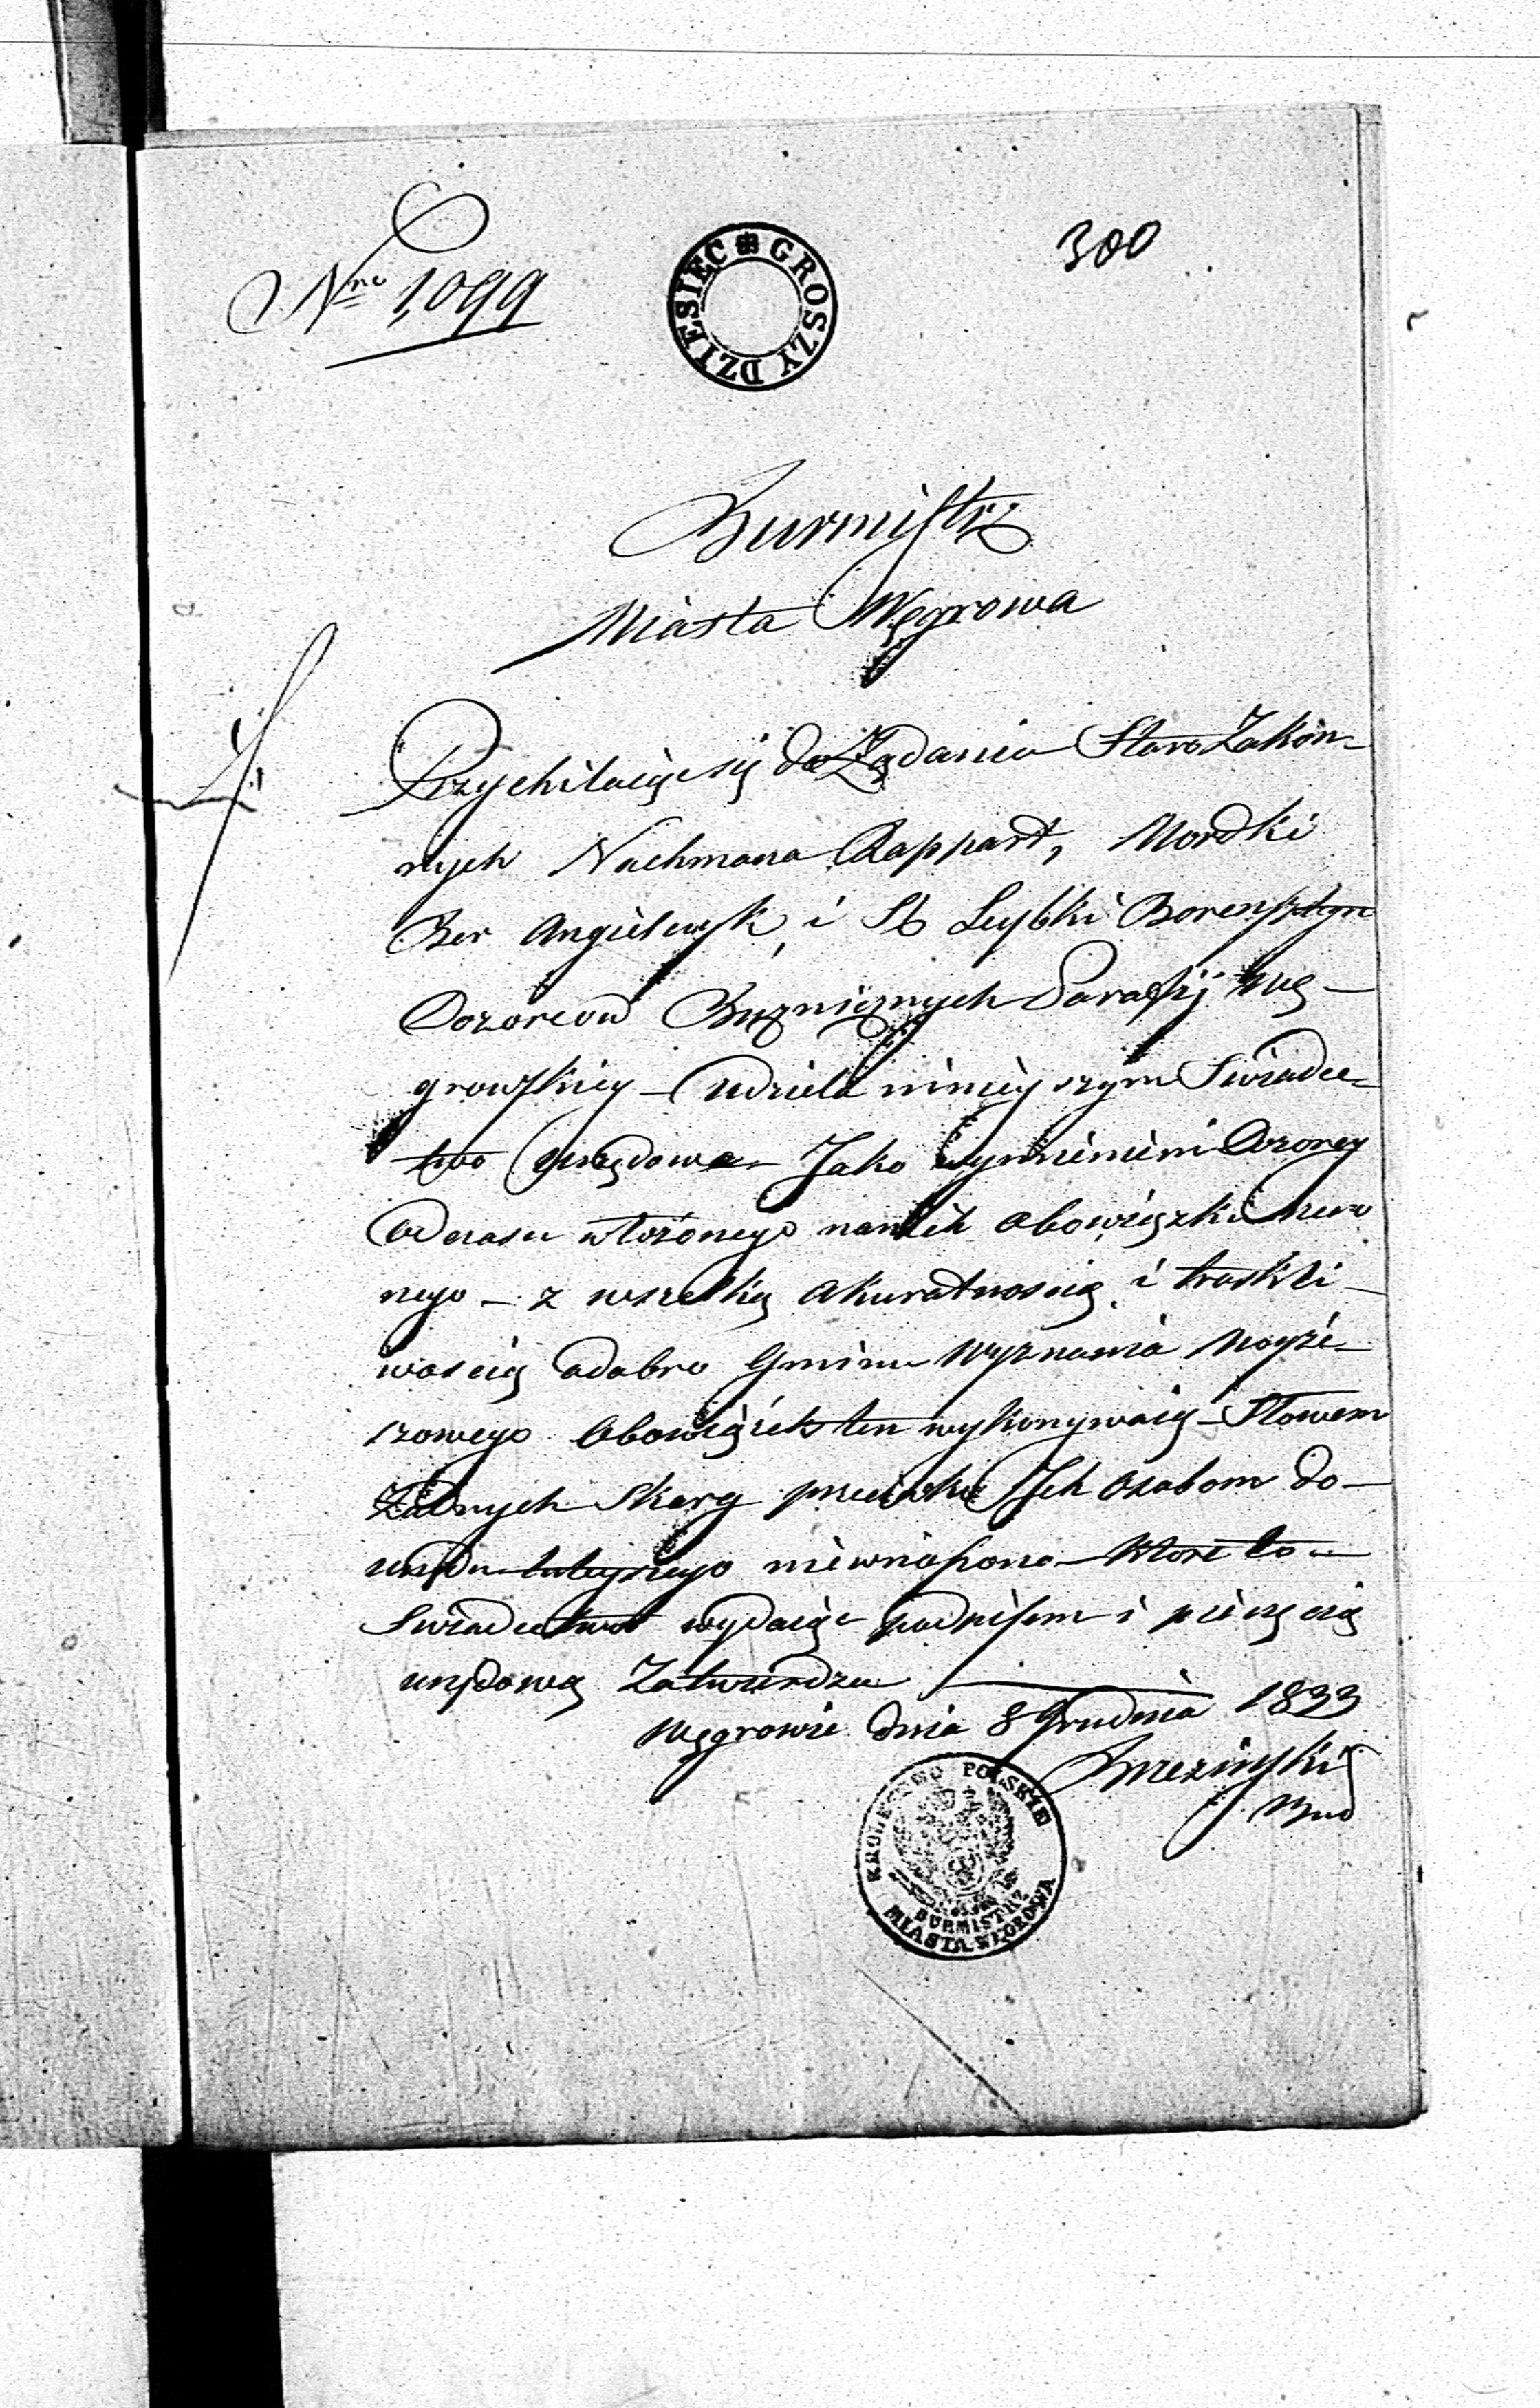 Nro 1,099
GROSZY DZIESIEC
300
Burmistrz
Miasta Węgrowa
Przychilaiąc się do Żądania Staro Zakon-
nych Nachmana Rappart, Mordki
Ber Angielczyk i Leybki Borensztyn
Dozorców Bużnicznych Parafij Wę-
growskiey - Udziela ninieyszym Swiadec-
two Urzędowe - Jako wymienieni Dozorcy
od czasu włożonego na nich obowiązku
nego - z wszelką akuratnoscią i troskli-
woscią o dobro Gminu Wyznania Mojże-
szowego Obowiązek ten wykonywaią - Słowem
Żadnych Skarg przeciwko Ich osobom do-
urzędu tuteyszego niewniesiono - Które to-
Swiadectwo wydaiąc podpisem i pieczęcią
urzędową Zatwierdza
Węgrowie dnia 8 Grudnia 1833
KROLESTWO POLSKIE
BURMISTRZ
MIASTA WĘGROWA